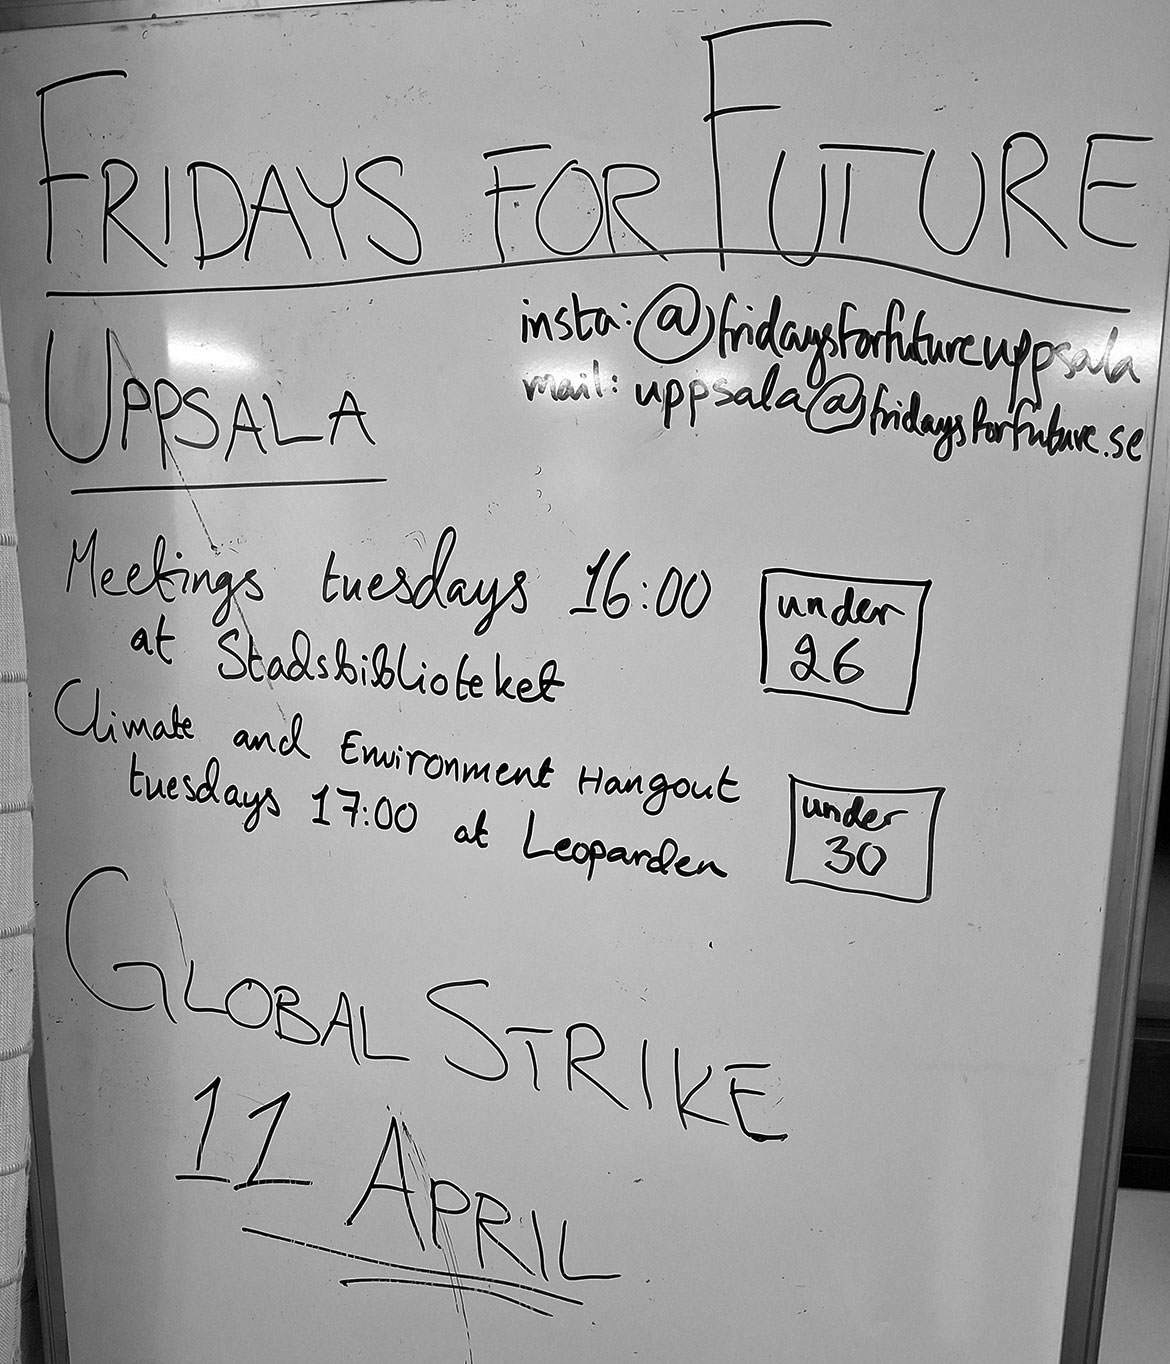 FRIDAYS FOR FUTURE
UPPSALA
insta: @fridaysforfutureuppsala
mail: uppsala@fridaysforfuture.se
Meetings tuesdays 16:00
at Stadsbiblioteket
under
26
Climate and Environment Hangout
tuesdays 17:00 at Leoparden
under
30
GLOBAL STRIKE
11 APRIL